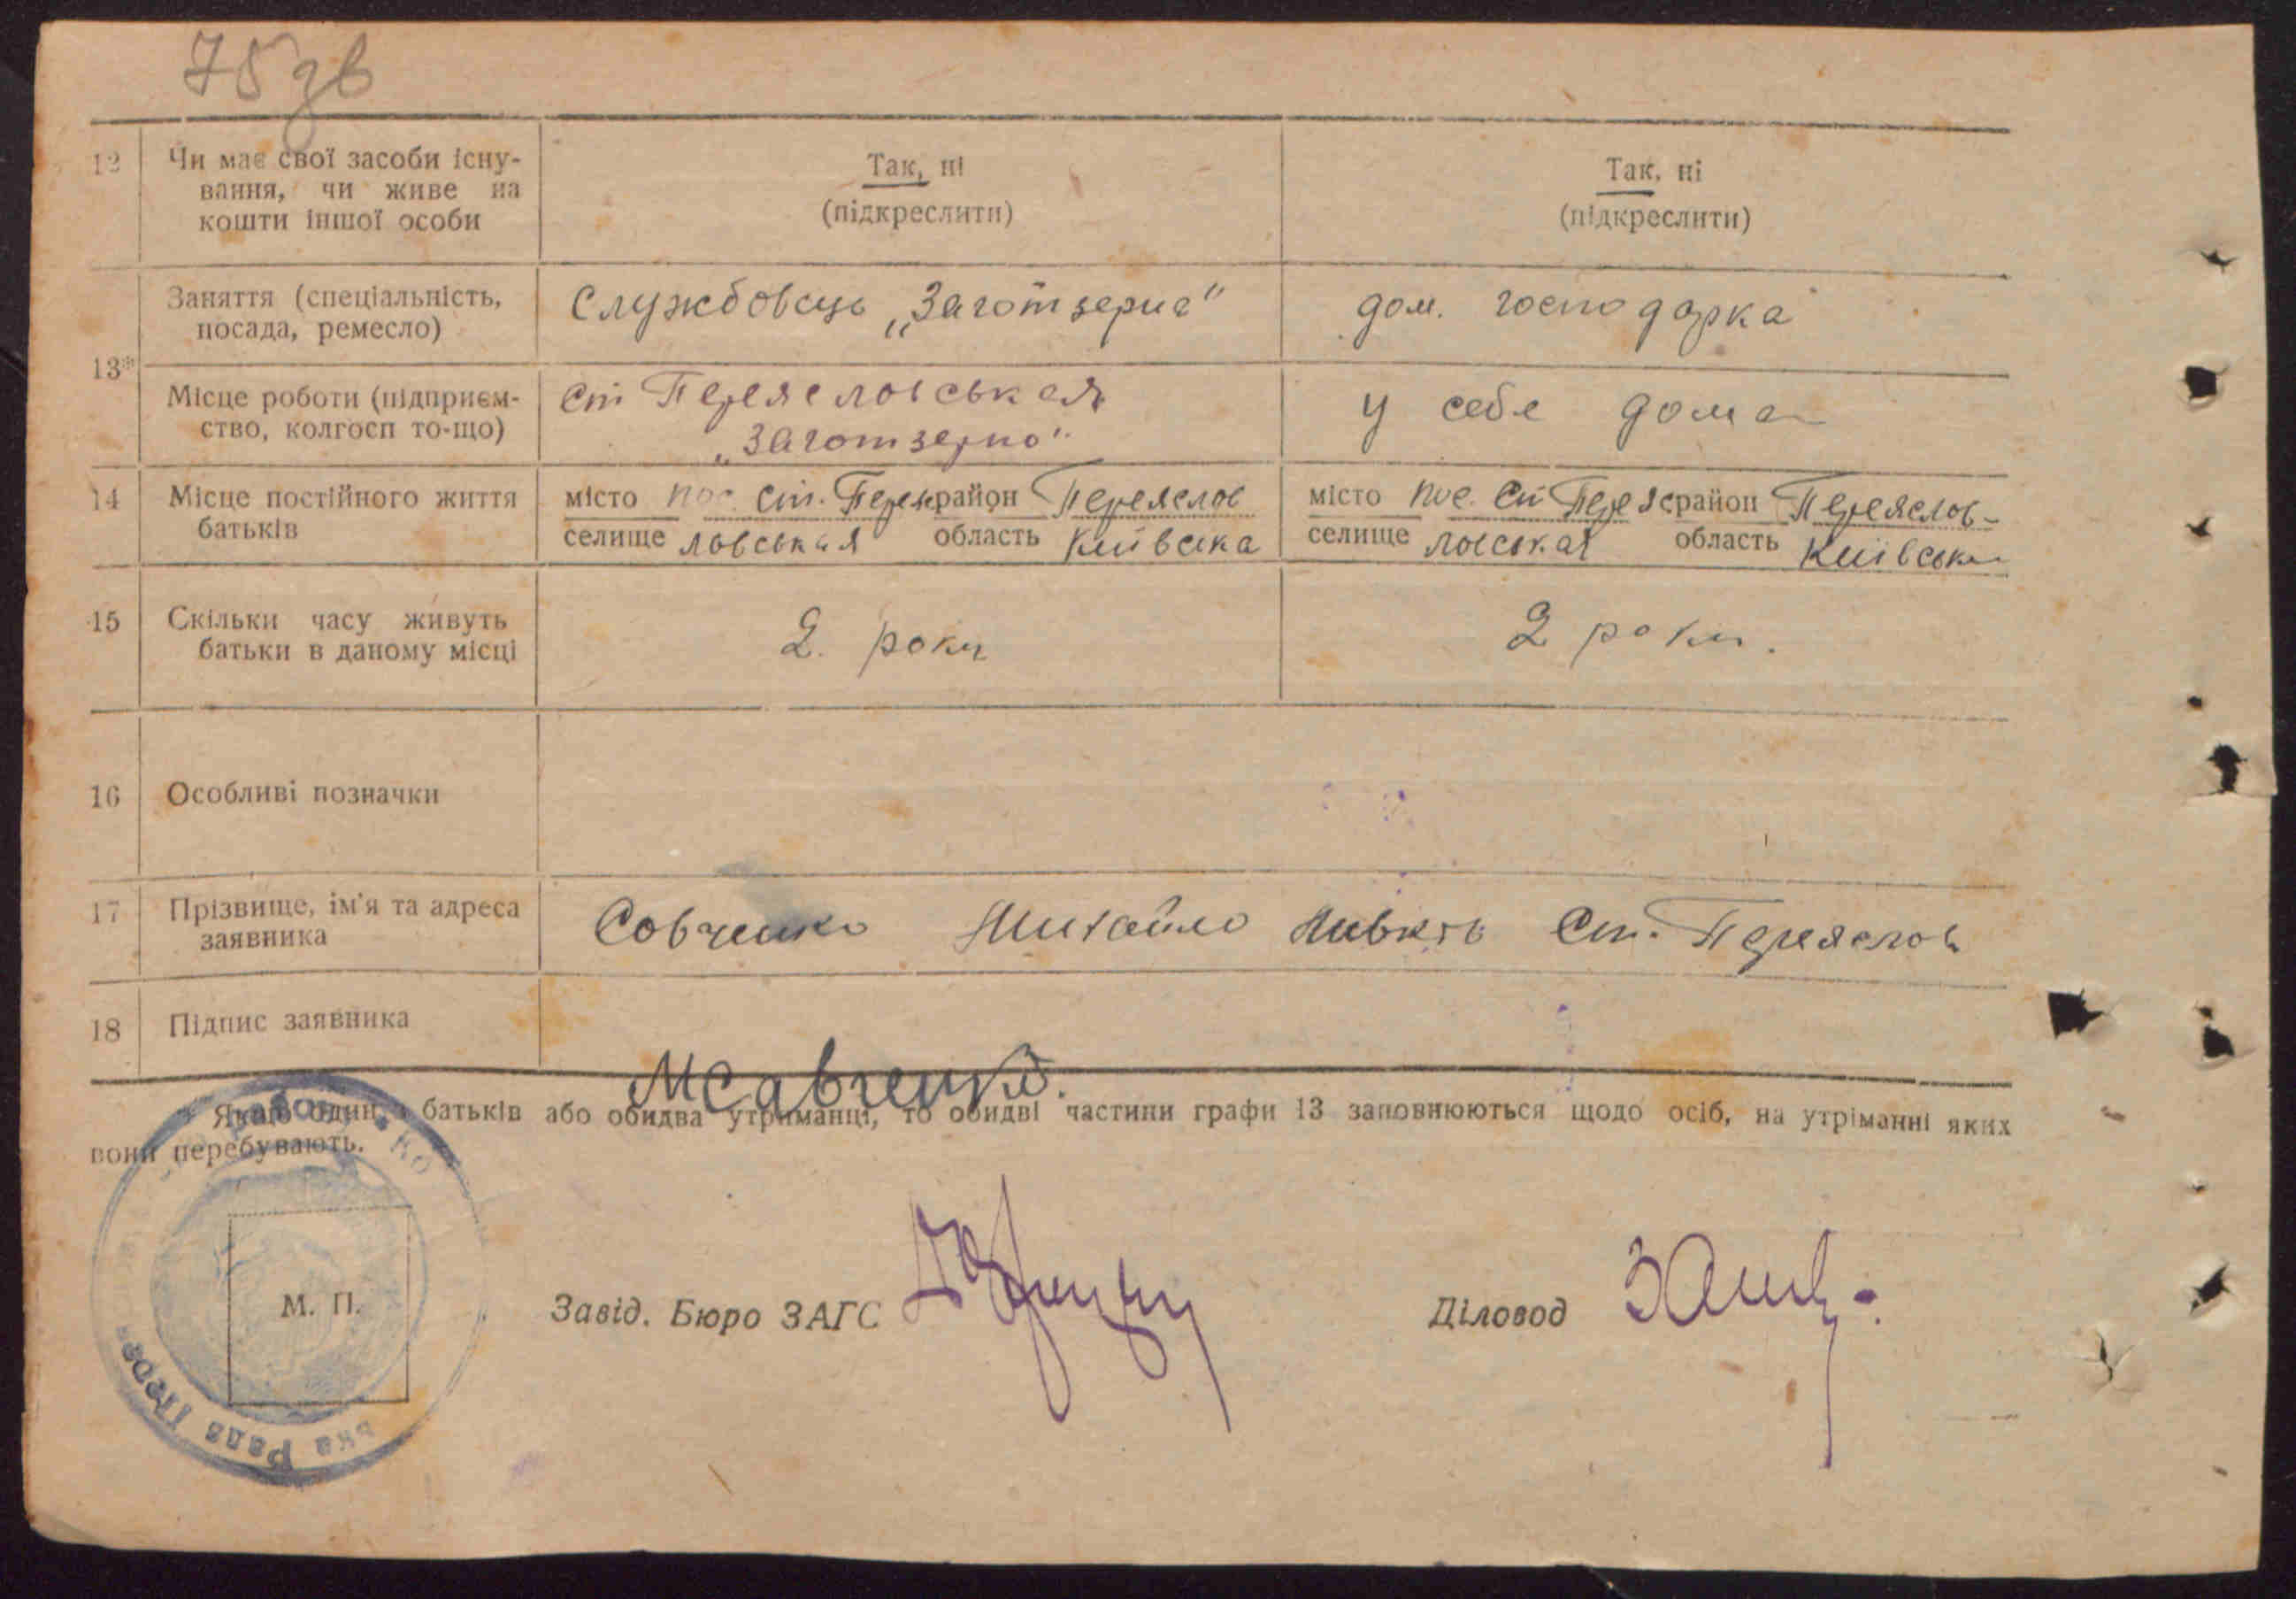 75 зв
12 Чи має свої засоби існу-
вання, чи живе на
кошти іншої особи
Так, ні
(підкреслити)
Так, ні
(підкреслити)
13*
Заняття (спеціальність,
посада, ремесло)
Службовець „Заготзерна“
дом. господарка
Місце роботи (підприєм-
ство, колгосп то-що)
ст Переясловськая
„Заготзерно“
у себе дома
14 Місце постійного життя
батьків
місто пос. ст. Перея район Переяслов
селище ловськая область Київська
місто пос. ст Переяс район Переяслов-
селище ловськая область Київська
15 Скільки часу живуть
батьки в даному місці
2. роки
2 роки.
16 Особливі позначки
17 Прізвище, ім'я та адреса
заявника
Совченко Михайло Ст. Переяслов
18 Підпис заявника
МСавченко.
Якщо один з батьків або обидва утриманці, то обидві частини графи 13 заповнюються щодо осіб, на утріманні яких
вони перебувають.
М. П.
ька Рада Перея
Завід. Бюро ЗАГС
Діловод